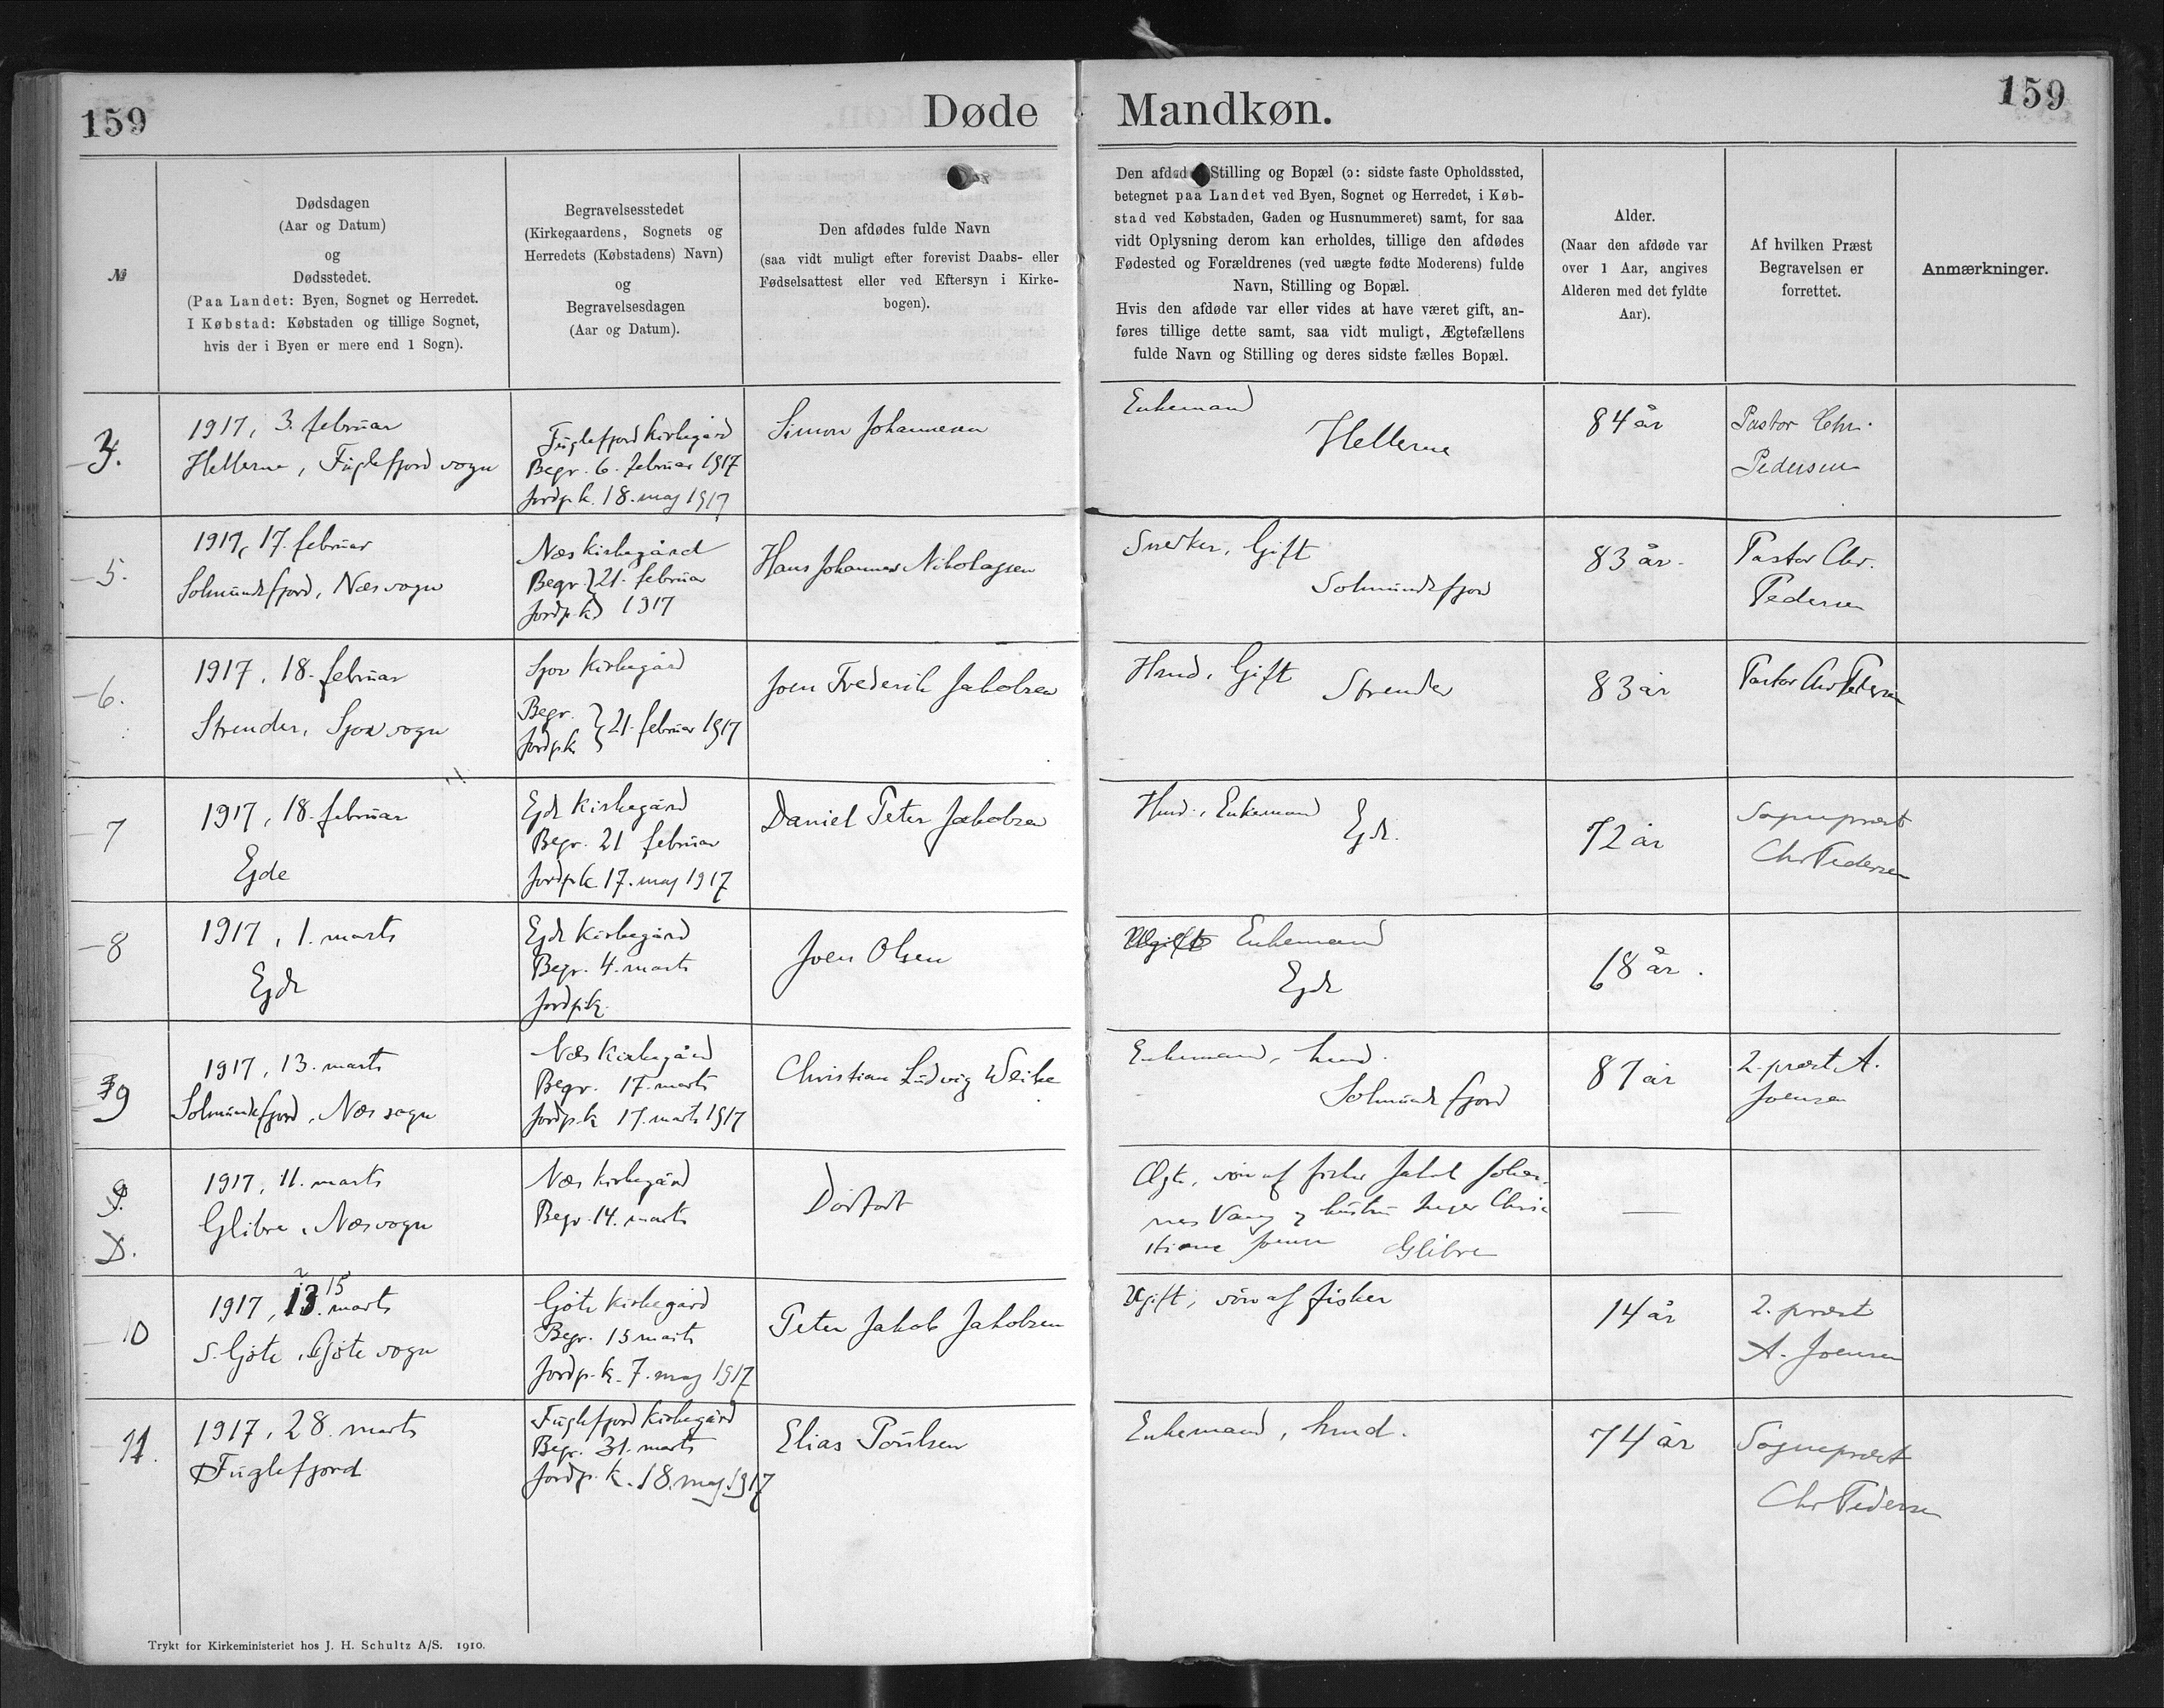 159
Døde Mandkøn.
159
№
Dødsdagen
(Aar og Datum)
og
Dødsstedet.
(Paa Landet: Byen, Sognet og Herredet.
I Købstad: Købstaden og tillige Sognet,
hvis der i Byen er mere end 1 Sogn).
Begravelsesstedet
(Kirkegaardens, Sognets og
Herredets (Købstadens) Navn)
og
Begravelsesdagen
(Aar og Datum).
Den afdødes fulde Navn
(saa vidt muligt efter forevist Daabs- eller
Fødselsattest eller ved Eftersyn i Kirke-
bogen).
Den afdødes Stilling og Bopæl (ɔ: sidste faste Opholdssted,
betegnet paa Landet ved Byen, Sognet og Herredet, i Køb-
stad ved Købstaden, Gaden og Husnummeret) samt, for saa
vidt Oplysning derom kan erholdes, tillige den afdødes
Fødested og Forældrenes (ved uægte fødte Moderens) fulde
Navn, Stilling og Bopæl.
Hvis den afdøde var eller vides at have været gift, an-
føres tillige dette samt, saa vidt muligt, Ægtefællens
fulde Navn og Stilling og deres sidste fælles Bopæl.
Alder.
(Naar den afdøde var
over 1 Aar, angives
Alderen med det fyldte
Aar).
Af hvilken Præst
Begravelsen er
forrettet.
Anmærkninger.
4.
1917, 3. februar
Hellerne, Fuglefjord sogn
Fuglefjord kirkegård
Begr. 6. februar 1917
Jordp.k. 18. maj 1917
Simon Johannesen
Enkemand
Hellerne
84 år
Pastor Chr.
Pedersen
5.
1917, 17. februar
Solmundefjord, Næs sogn
Næs kirkegård
Begr. } 21. februar
Jordp.k } 1917
Hans Johannes Nikolajsen
Snedker, Gift
Solmundefjord
83 år.
Pastor Chr.
Pedersen
6.
1917, 18. februar
Strender, Sjov sogn
Sjov kirkegård
Begr.
Jordp.k } 21. februar 1917
Joen Frederik Jakobsen
Hmd, Gift
Strender
83 år
Pastor Chr Pedersen
7
1917, 18. februar
Ejde
Ejde kirkegård
Begr. 21 februar
Jordp.k. 17. maj 1917
Daniel Peter Jakobsen
Hmd., Enkemand
Ejde.
72 år
Sognepræst
Chr Pedersen
8
1917, 1. marts
Ejde
Ejde kirkegård
Begr. 4. marts
Jordp.k.
Joen Olsen
Ugift Enkemand
Ejde
68 år.
9
1917, 13. marts
Solmundefjord, Næs sogn
Næs kirkegård
Begr. 17. marts
Jordp.k 17. marts 1917
Christian Ludvig Weihe
Enkemand, hmd.
Solmundefjord
87 år
2. præst A.
Joensen
9.
D.
1917, 11. marts
Glibre, Næs sogn
Næs kirkegård
Begr. 14. marts
Dødfødt
Ægte, søn af fisker Jakob Johan-
nes Vang og hustru Inger Chri-
stiane Joensen Glibre
—
10
15
1917, 13. marts
S. Gjøte, Gjøte sogn
Gjøte kirkegård
Begr. 15 marts
Jordp.k. 7. maj 1917
Peter Jakob Jakobsen
Ugift, søn af fisker
14 år
2. præst
A. Joensen
11.
1917, 28. marts
Fuglefjord
Fuglefjord kirkegård
Begr. 31. marts
Jordp.k. 18. maj 1917
Elias Poulsen
Enkemand, hmd.
74 år
Sognepræst
Chr Pedersen
Trykt for Kirkeministeriet hos J. H. Schultz A/S. 1910.